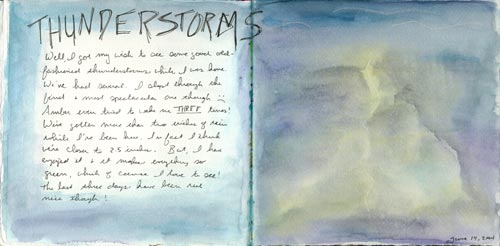 THUNDERSTORMS
Well, I got my wish to see some good old-
fashioned thunderstorms while I was home.
We've had several. I slept through the
first & most spectacular one though :(
Amber even tried to wake me THREE times!
We've gotten more than two inches of rain
while I've been here. In fact I think
we're closer to 2.5 inches. But, I have
enjoyed it & it makes everything so
green, which of course I love to see!
The last three days have been real
nice though!
June 14, 2004